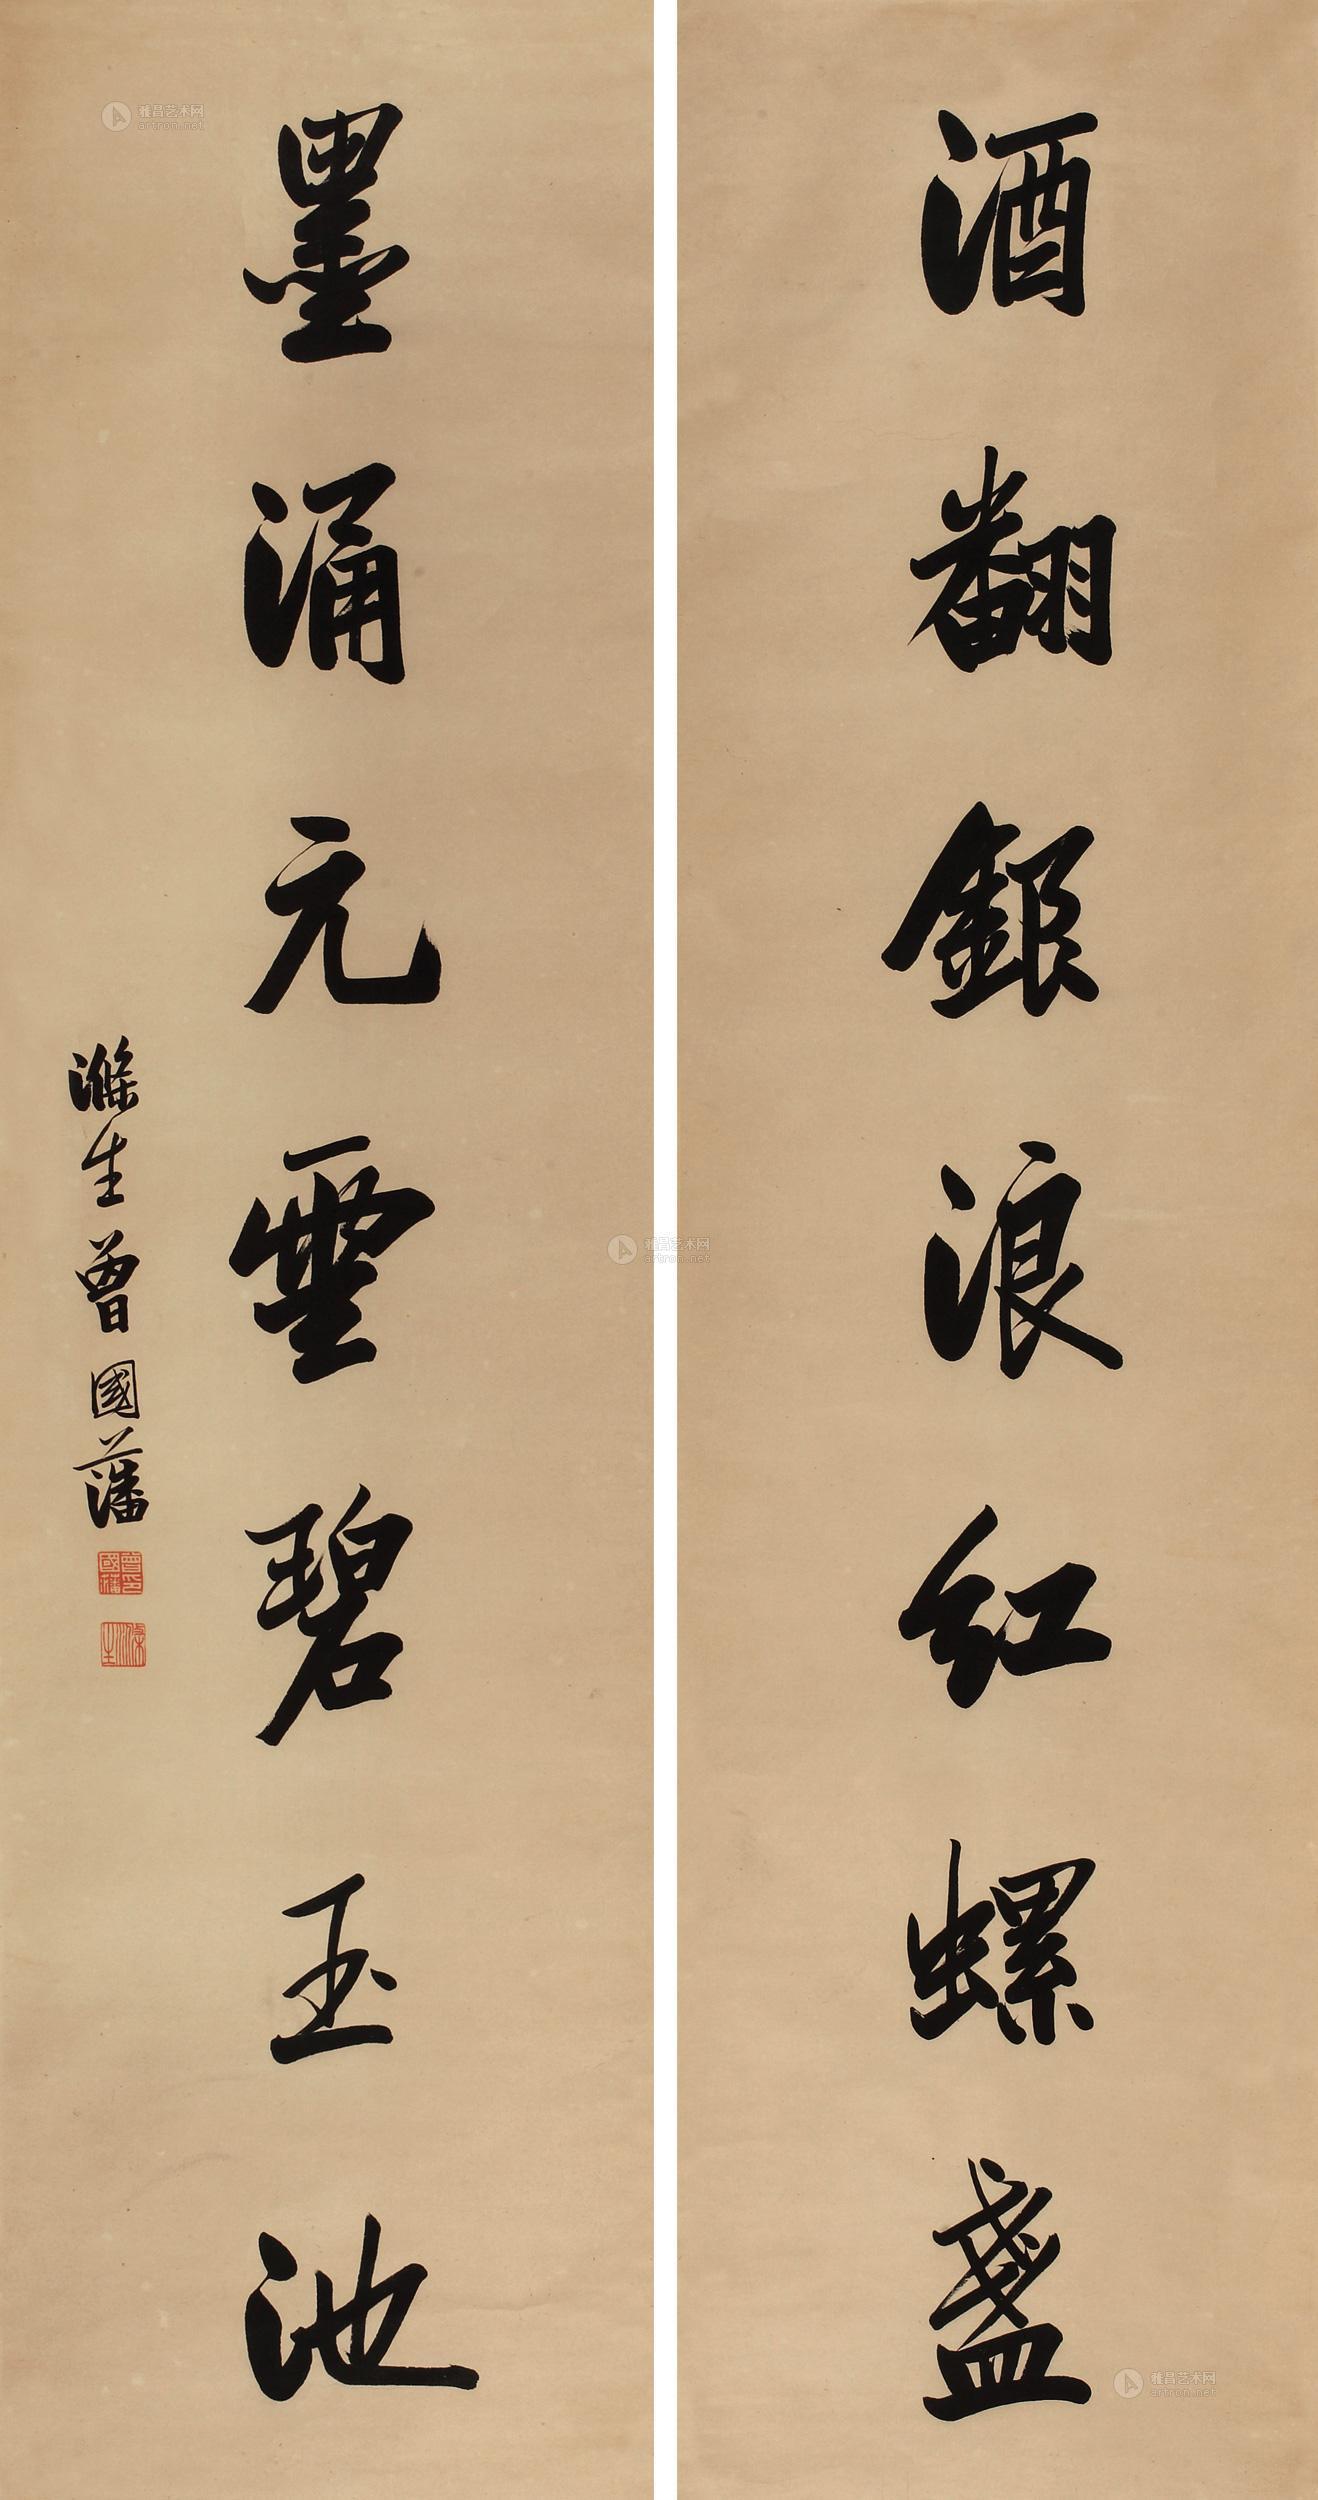 酒翻銀浪紅螺盞
墨涌元雲碧玉池
滌生曾國藩
曾印國藩
滌生
雅昌艺术网
artron.net
雅昌艺术网
artron.net
雅昌艺术网
artron.net